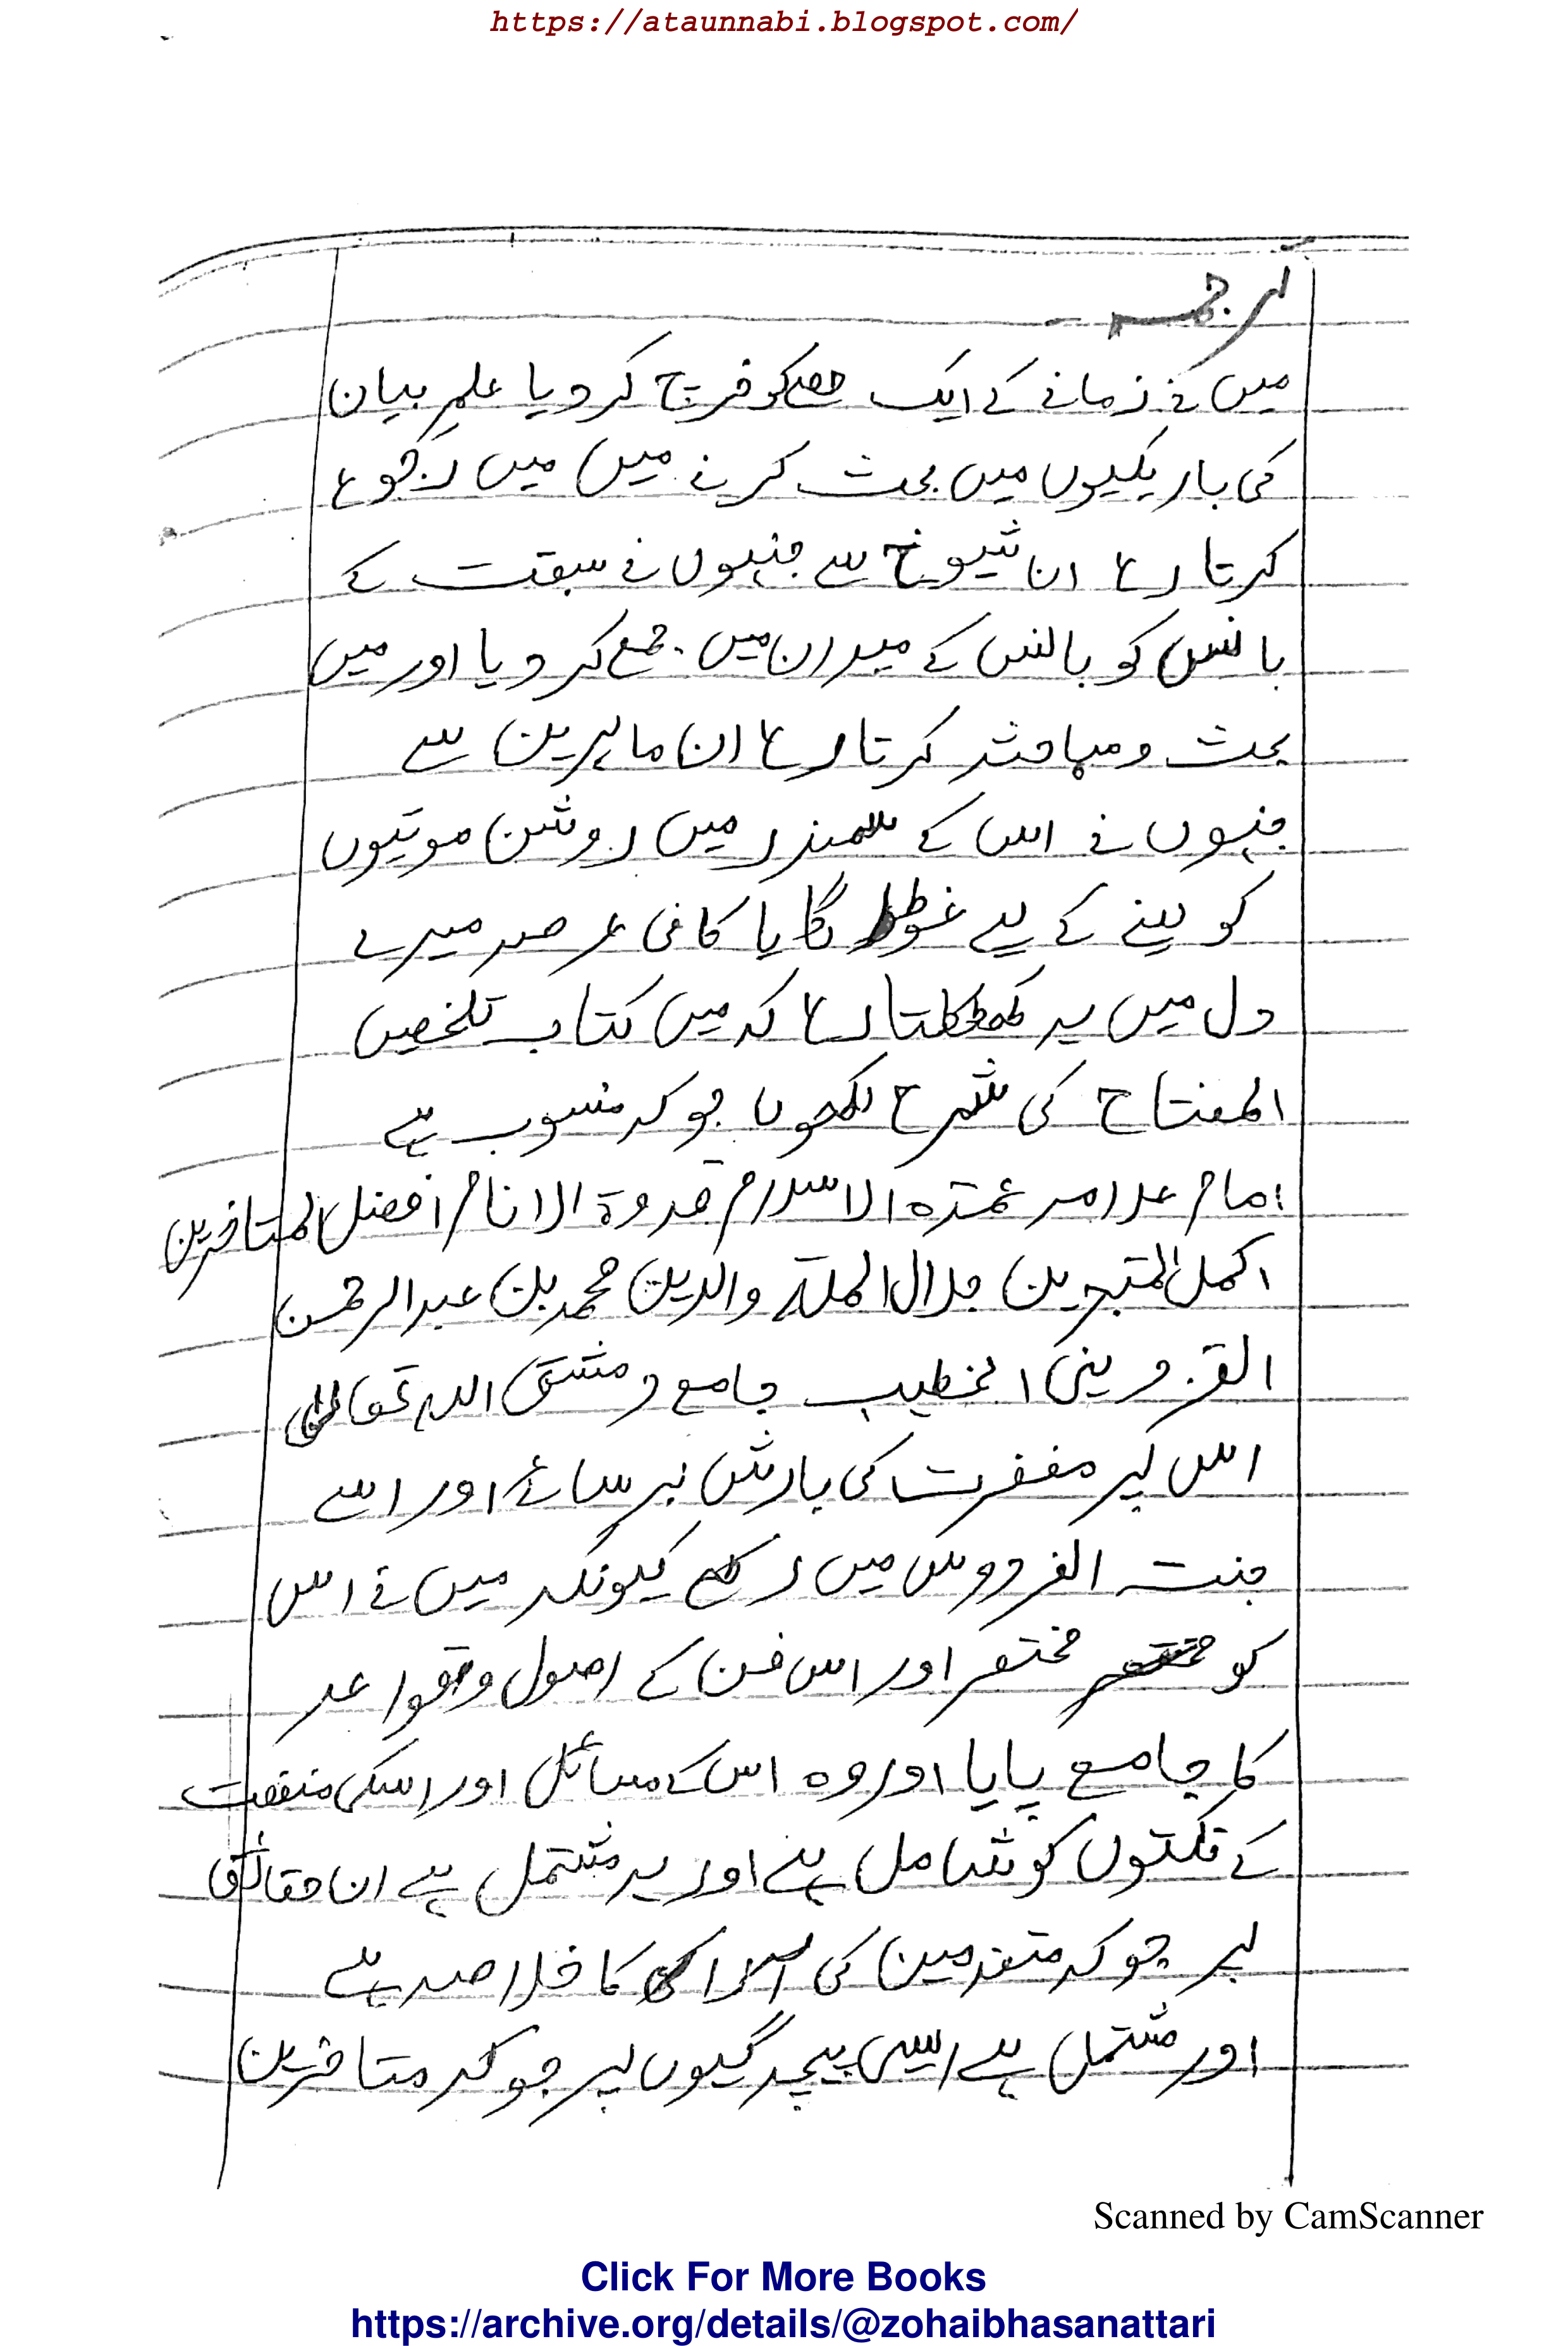 https://ataunnabi.blogspot.com/
ترجمہ
میں نے زمانے کے ایک حصے کو خرچ کر دیا علمِ بیان
کی باریکیوں میں بحث کرنے میں میں رجوع
کرتا رہا ان شیوخ سے جنہوں نے سبقت کے
بانس کو بانس کے میدان میں جمع کر دیا اور میں
بحث و مباحثہ کرتا رہا ان ماہرین سے
جنہوں نے اس کے سمندر میں روشن موتیوں
کو لینے کے لیے غوطہ لگایا کافی عرصہ میرے
دل میں یہ کھٹکتا رہا کہ میں کتاب تلخیص
المفتاح کی شرح لکھوں جو کہ منسوب ہے
امام علامہ عمدہ الاسلام قدوۃ الانام افضل المتاخرین
اکمل المتبحرین جلال الملۃ والدین محمد بن عبدالرحمن
القزوینی الخطیب جامع دمشق اللہ تعالی
اس پر مغفرت کی بارش برسائے اور اسے
جنت الفردوس میں رکھے کیونکہ میں نے اس
کو مختصر اور اس فن کے اصول و قواعد
کا جامع پایا اور وہ اس کے مسائل اور اسکی منفعت
کے نکتوں کو شامل ہے اور یہ مشتمل ہے ان حقائق
پر جو کہ متقدمین کی کا خلاصہ ہے
اور مشتمل ہے ایسی پیچدگیوں پر جو کہ متاخرین
Scanned by CamScanner
Click For More Books
https://archive.org/details/@zohaibhasanattari